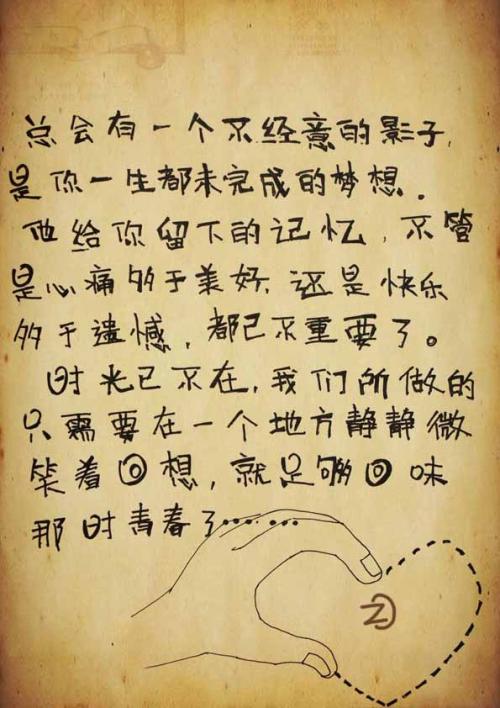 总会有一个不经意的影子,
是你一生都未完成的梦想.
他给你留下的记忆,不管
是心痛多于美好,还是快乐
多于遗憾,都已不重要了。
时光已不在,我们所做的
只需要在一个地方静静微
笑着回想,就足够回味
那时青春了……